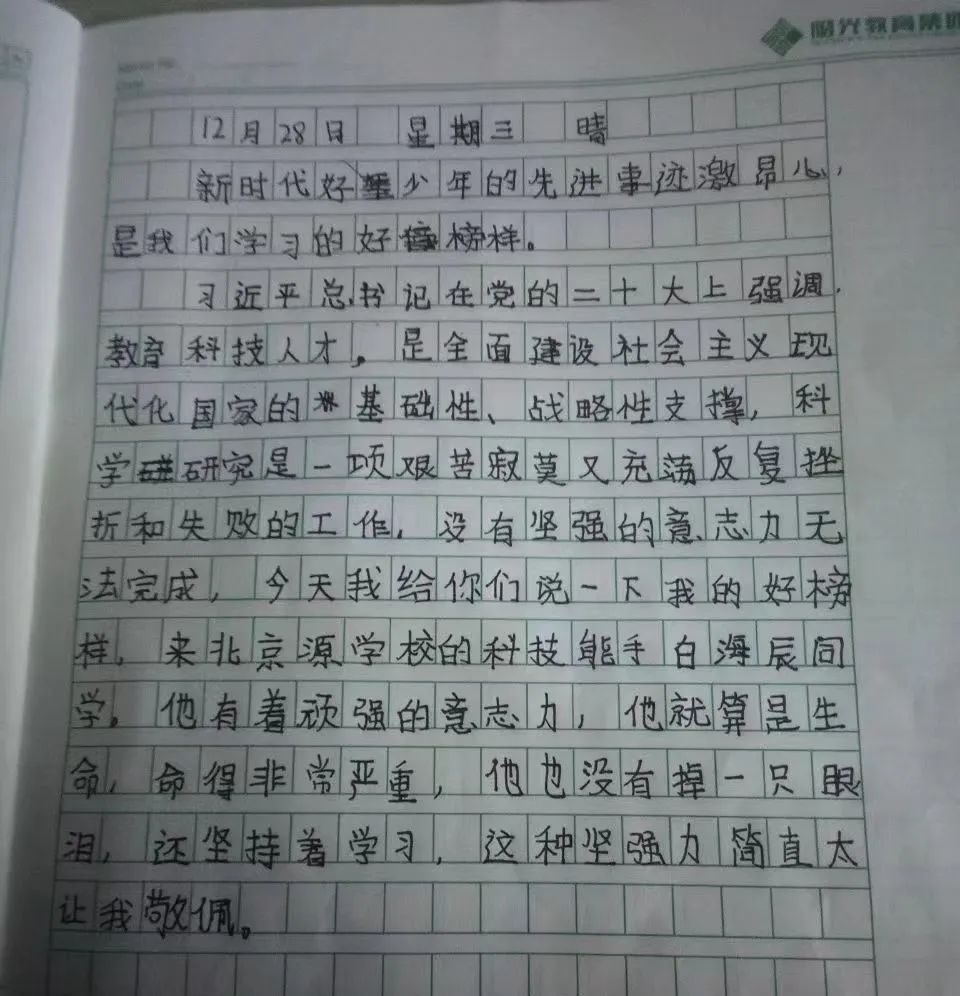 阳光教育集团
12月28日 星期三 晴
新时代好少年的先进事迹激昂心,
是我们学习的好榜样。
习近平总书记在党的二十大上强调,
教育科技人才,是全面建设社会主义现
代化国家的基础性、战略性支撑,科
学研究是一项艰苦寂莫又充荡反复挫
折和失败的工作,没有坚强的意志力无
法完成,今天我给你们说一下我的好榜
样,来北京源学校的科技能手白海辰同
学。他有着顽强的意志力,他就算是生
命,命得非常严重,他也没有掉一只眼
泪,还坚持着学习,这种坚强力简直太
让我敬佩。